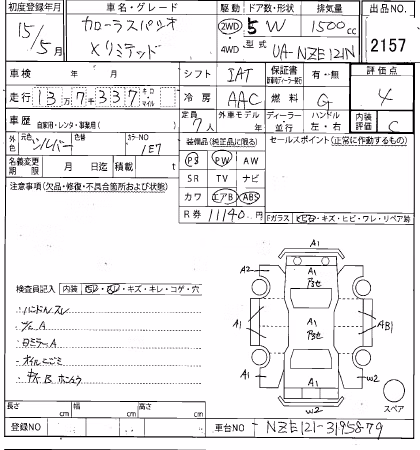 初度登録年月 車名・グレード 駆動 ドア数・形状 排気量 出品NO.
15/5月 カローラスパシオ 2WD 5 W 1500cc 2157
Xリミテッド 4WD 型式 UA-NZE121N
車検 年 月 シフト IAT 保証書 有・無 評価点
走行 13万7千337 キロ マイル 冷房 AAC 燃料 G 4
車歴 自家用・レンタ・事業用( ) 定員 7人 外車モデル 年 ディーラー 並行 ハンドル 左・右 内装評価 C
外色 元色 シルバー カラーNO 1E7 装備品(純正品に限る) セールスポイント(正常に作動するもの)
名義変更期限 月 日迄 積載 t PS PW AW
注意事項(欠品・修復・不具合箇所および状態) SR TV ナビ
カワ エアB ABS
R券 11140円 Fガラス トビ石・キズ・ヒビ・ワレ・リペア跡
検査員記入 内装 ・スレ・キズ・キレ・コゲ・穴
ハンドルスレ
A
ミラーA
オイルにごみ
B
A1
A2 A1
A1 A1 AB1
A1
A1 w2
w2
スペア
長さ cm 幅 cm 高さ cm
登録NO 車台NO NZE121-3195879